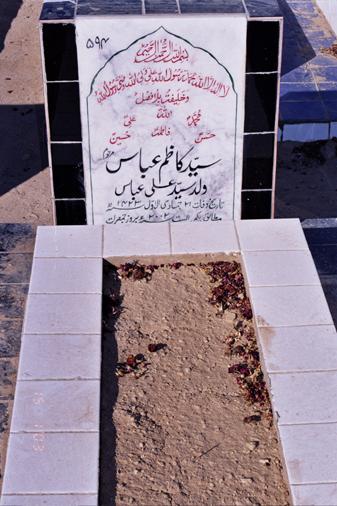 ۵۹۴
بسم اللہ الرحمن الرحیم
لا الہ الا اللہ محمد رسول اللہ علی ولی اللہ وصی رسول اللہ
وخلیفتہ بلا فصل
اللہ
محمد علی
فاطمہ
حسن حسین
سید کاظم عباس مرحوم
ولد سید علی عباس
تاریخ وفات ۲۱ جمادی الاول ۱۴۲۳ھ
مطابق یکم اگست ۲۰۰۲ء بروز جمعرات